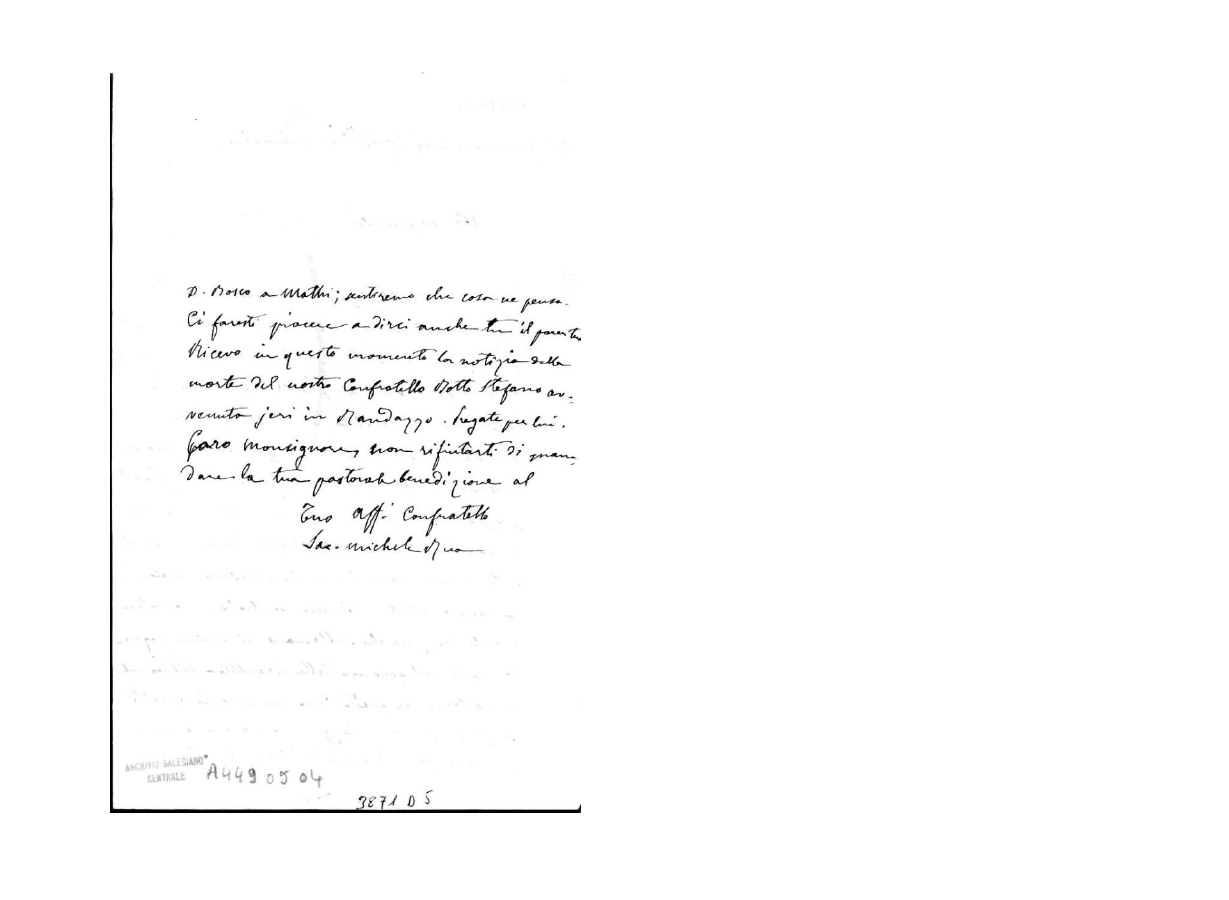 D. Bosco a Mathi; sentiremo che cosa ne pensa.
Ci faresti piacere a dirci anche tu il parer tuo
Ricevo in questo momento la notizia della
morte del nostro Confratello Botto Stefano av-
venuta jeri in Randazzo. Pregate per lui.
Caro Monsignore, non rifiutarti di man-
dare la tua pastorale benedizione al
Tuo Aff. Confratello
Sac. Michele Rua
ARCHIVIO SALESIANO
CENTRALE
A449 05 04
3871 D 5